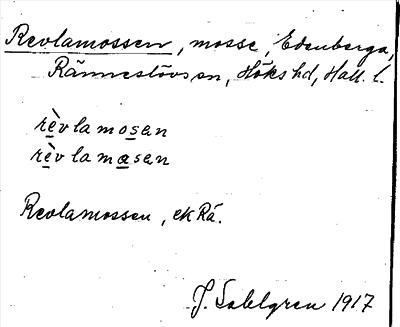 Revlamossen, mosse, Edenberga,
Ränneslövs sn, Höks hd, Hall. l.
rèvlamosan
rèvlamasan
Revlamossen, ekRä.
J. Sahlgren 1917